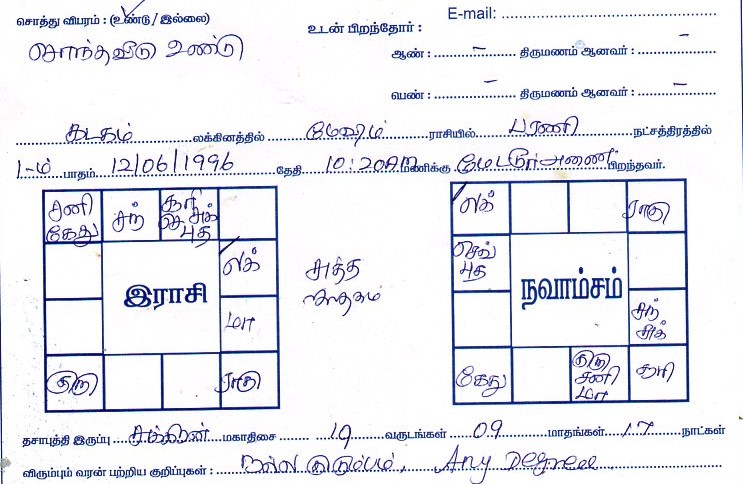 E-mail:
சொத்து விபரம் : (உண்டு / இல்லை)
உடன் பிறந்தோர் :
சொந்தவீடு உண்டு
ஆண் : – திருமணம் ஆனவர் : –
பெண் : – திருமணம் ஆனவர் : –
கடகம் லக்கினத்தில் மேஷம் ராசியில் பரணி நட்சத்திரத்தில்
1-ம் பாதம் 12/06/1996 தேதி 10:20AM மணிக்கு மேட்டூர் அணை பிறந்தவர்.
சனி கேது சந் சூரி செ சுக் புத
லக்
மா
குரு ராகு
இராசி
சுத்த ஜாதகம்
லக் ராகு
செவ் புத
சந் சுக்
கேது குரு சனி மா சூரி
நவாம்சம்
தசாபுத்தி இருப்பு சுக்கிரன் மகாதிசை 19 வருடங்கள் 09 மாதங்கள் 17 நாட்கள்
விரும்பும் வரன் பற்றிய குறிப்புகள் : நல்ல குடும்பம், Any Degree